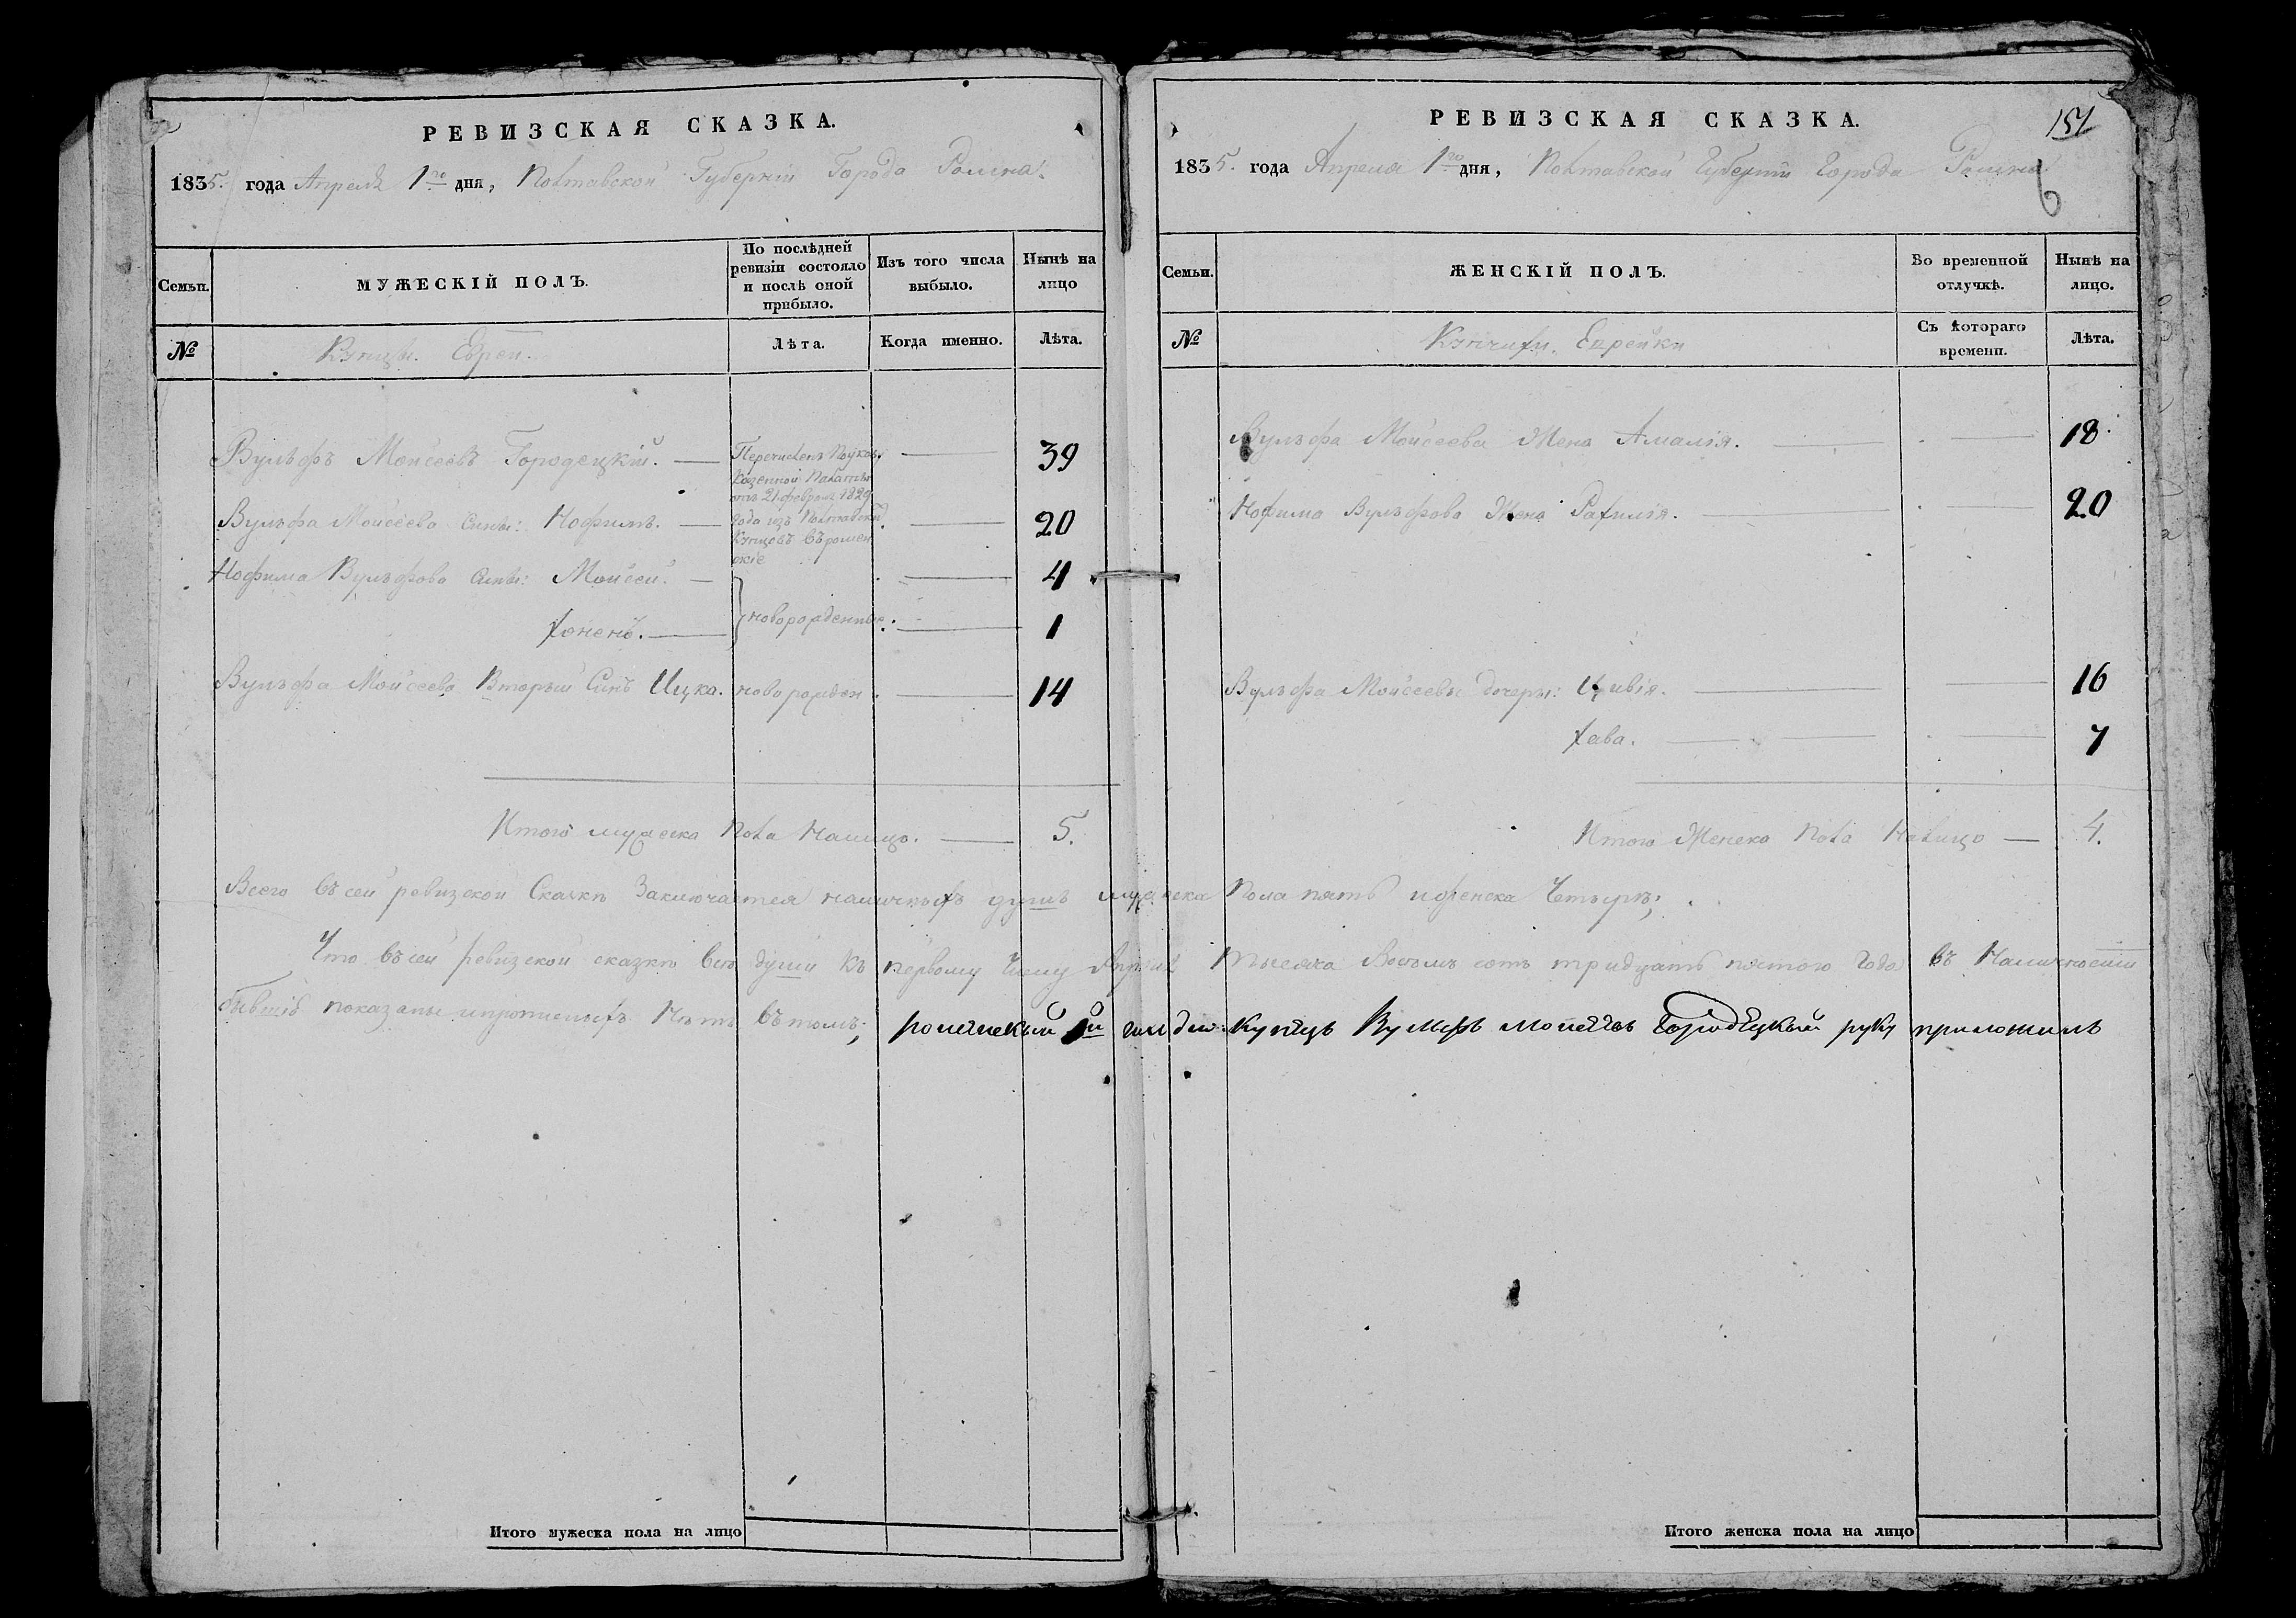 РЕВИЗСКАЯ СКАЗКА.
1835. года Апреля 1го дня, Полтавской Губернии Города Ромна.
Семьи.
МУЖЕСКІЙ ПОЛЪ.
По послѣдней ревизіи состояло и послѣ оной прибыло.
Изъ того числа выбыло.
Нынѣ на лицо
№
Купцы. Евреи.
Лѣта.
Когда именно.
Лѣта.
Вульфъ Моисеевъ Городецкій. 39
Перечисленъ
Казенной Палаты
21 февраля 1829
года изъ Полтавскихъ
Купцовъ въ ромен
скіе
Вульфа Моисеева Сынъ: Нофимъ. 20
Нофима Вульфова Сыны: Моисей. 4
Хоненъ. новорожденные 1
Вульфа Моисеева Вторый Сынъ Ицка. новорожден 14
Итого мужеска пола налицо. 5.
РЕВИЗСКАЯ СКАЗКА.
151
1835. года Апреля 1го дня, Полтавской Губернии Города Ромна
6
Семьи.
ЖЕНСКІЙ ПОЛЪ.
Во временной отлучкѣ.
Нынѣ на лицо.
№
Купчихи. Еврейки
Съ котораго времени.
Лѣта.
Вульфа Моисеева Жена Амалія. 18.
Нофима Вульфова Жена Рахилія. 20
Вульфа Моисеевы дочеры: Цивія. 16
Хава. 7
Итого Женска пола налицо 4.
Всего въ сей ревизской Сказкѣ Заключается наличныхъ душъ мужеска пола пять и женска Четыре;
Что въ сей ревизской сказкѣ всѣ души къ первому Числу Апреля тысяча восемь сотъ тридцать пятого года въ Наличности
бывшіе показаны и нѣтъ въ томъ; роменский 1й гильдии купецъ Вульфъ Моисеевъ Городецкий руку приложилъ
Итого мужеска пола на лицо
Итого женска пола на лицо